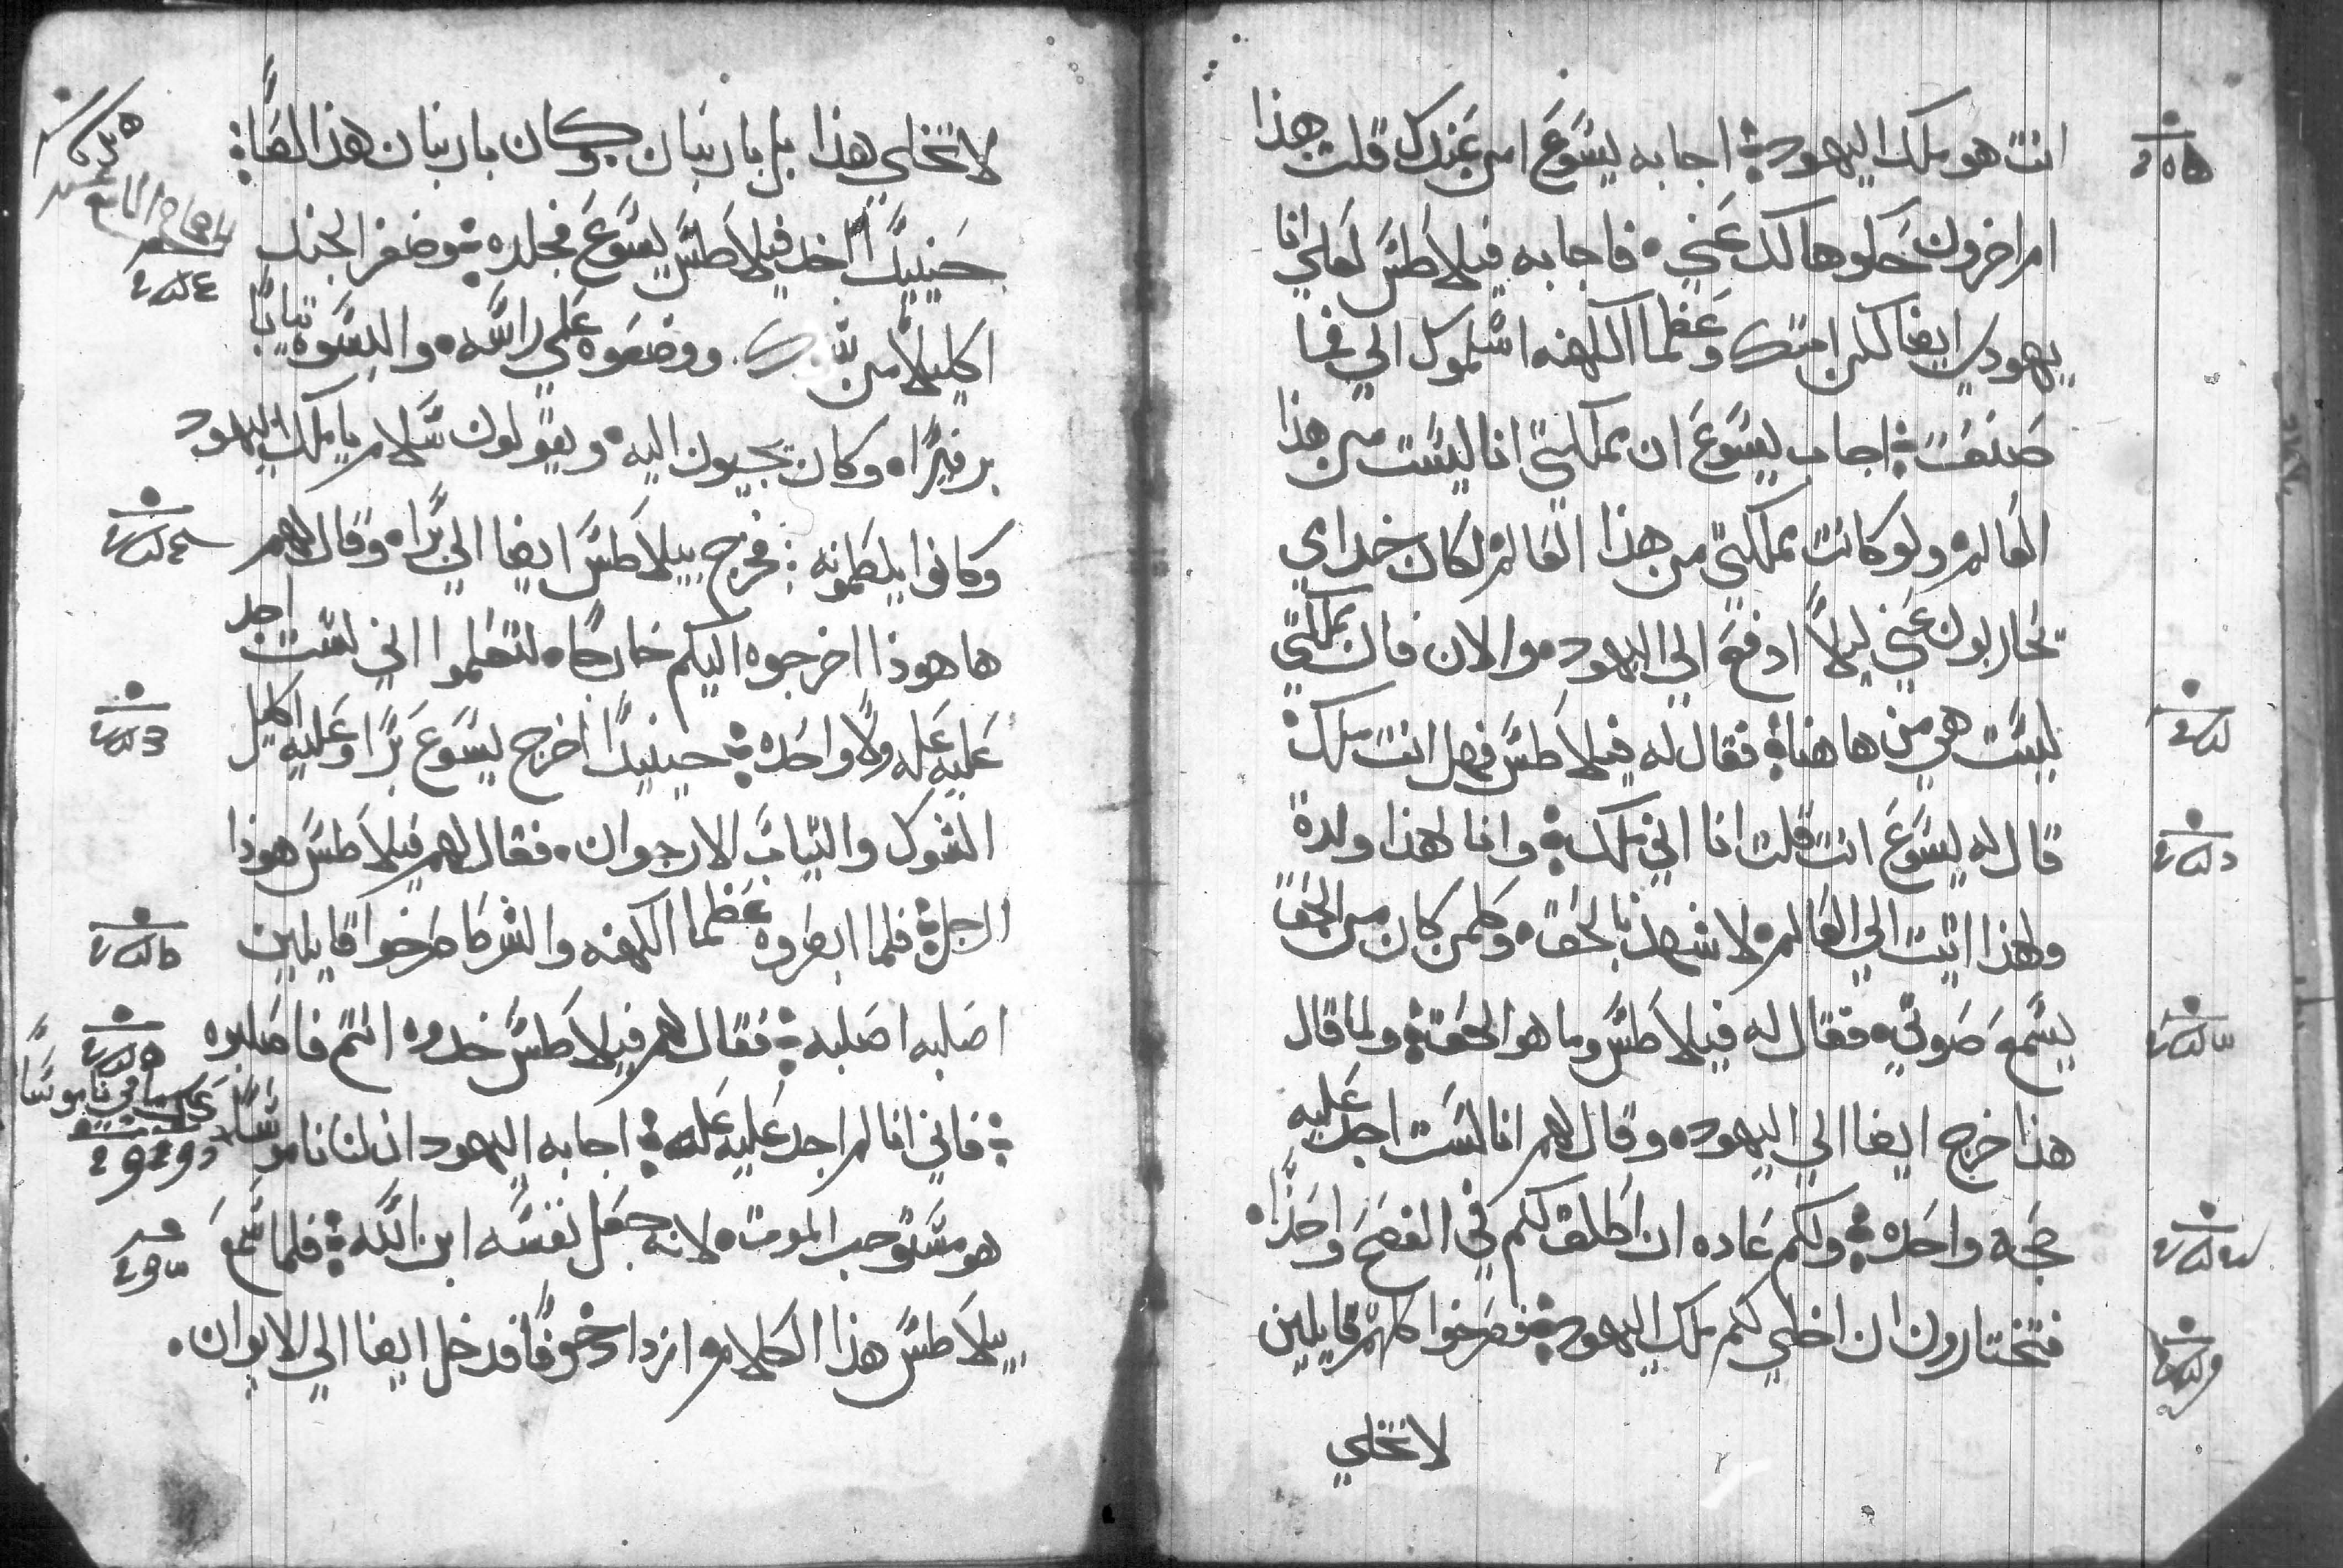 انت هو ملك اليهود اجابه يسوع امن عندك قلت هذا
ام اخرون حكوها لك عني فاجابه فيلاطس لعلي انا
يهودي ايضا لكن امتك وعظما الكهنه اسلموك الي فما
صنعت اجاب يسوع ان مملكتي انا ليست من هذا
العالم ولو كانت مملكتي من هذا العالم لكان خدامي
يحاربون عني ليلا ادفع الي اليهود والان فان مملكتي
ليست هي من هاهنا فقال له فيلاطس فهل انت ملك
قال له يسوع انت قلت انا اني ملك وانا لهذا ولدة
ولهذا اتيت الي العالم لاشهد بالحق وكلمن كان من الحق
يسمع صوتي فقال له فيلاطس وما هو الحق ولما قال
هذا خرج ايضا الي اليهود وقال لهم انا لست اجد عليه
حجه واحده ولكم عاده ان اطلق لكم في الفصح واحدا
فتختارون ان اخلي لكم ملك اليهود فصرخوا كلهم قايلين
لا تخلي
لا تخلي هذا بل باربنان وكان باربنان هذا لصا
حينيدا اخد فيلاطس يسوع فجلده وضفر الجند
اكليلا من شوك ووضعوه علي راسه والبسوه تيابا
برفيرا وكان يجيون اليه ويقولون سلام يا ملك اليهود
وكانوا يلطمونه فخرج بيلاطس ايضا الي برا وقال لهم
هاهوذا اخرجوه اليكم خارجا لتعلموا اني لست اجد
عليه عله ولا واحده حينيدا اخرج يسوع برا وعليه اكليل
الشوك والتياب الارجوان فقال لهم فيلاطس هوذا
الرجل فلما ابصروه عظما الكهنه والشرطا صرخوا قايلين
اصلبه اصلبه فقال لهم فيلاطس خدوه انتم فاصلبوه
فاني انا لم اجد عليه عله اجابه اليهود ان لنا ناموسا
هو مستوجب الموت لانه جعل نفسه ابن الله فلما سمع
بيلاطس هذا الكلام ازداد خوفا فدخل ايضا الي الايوان